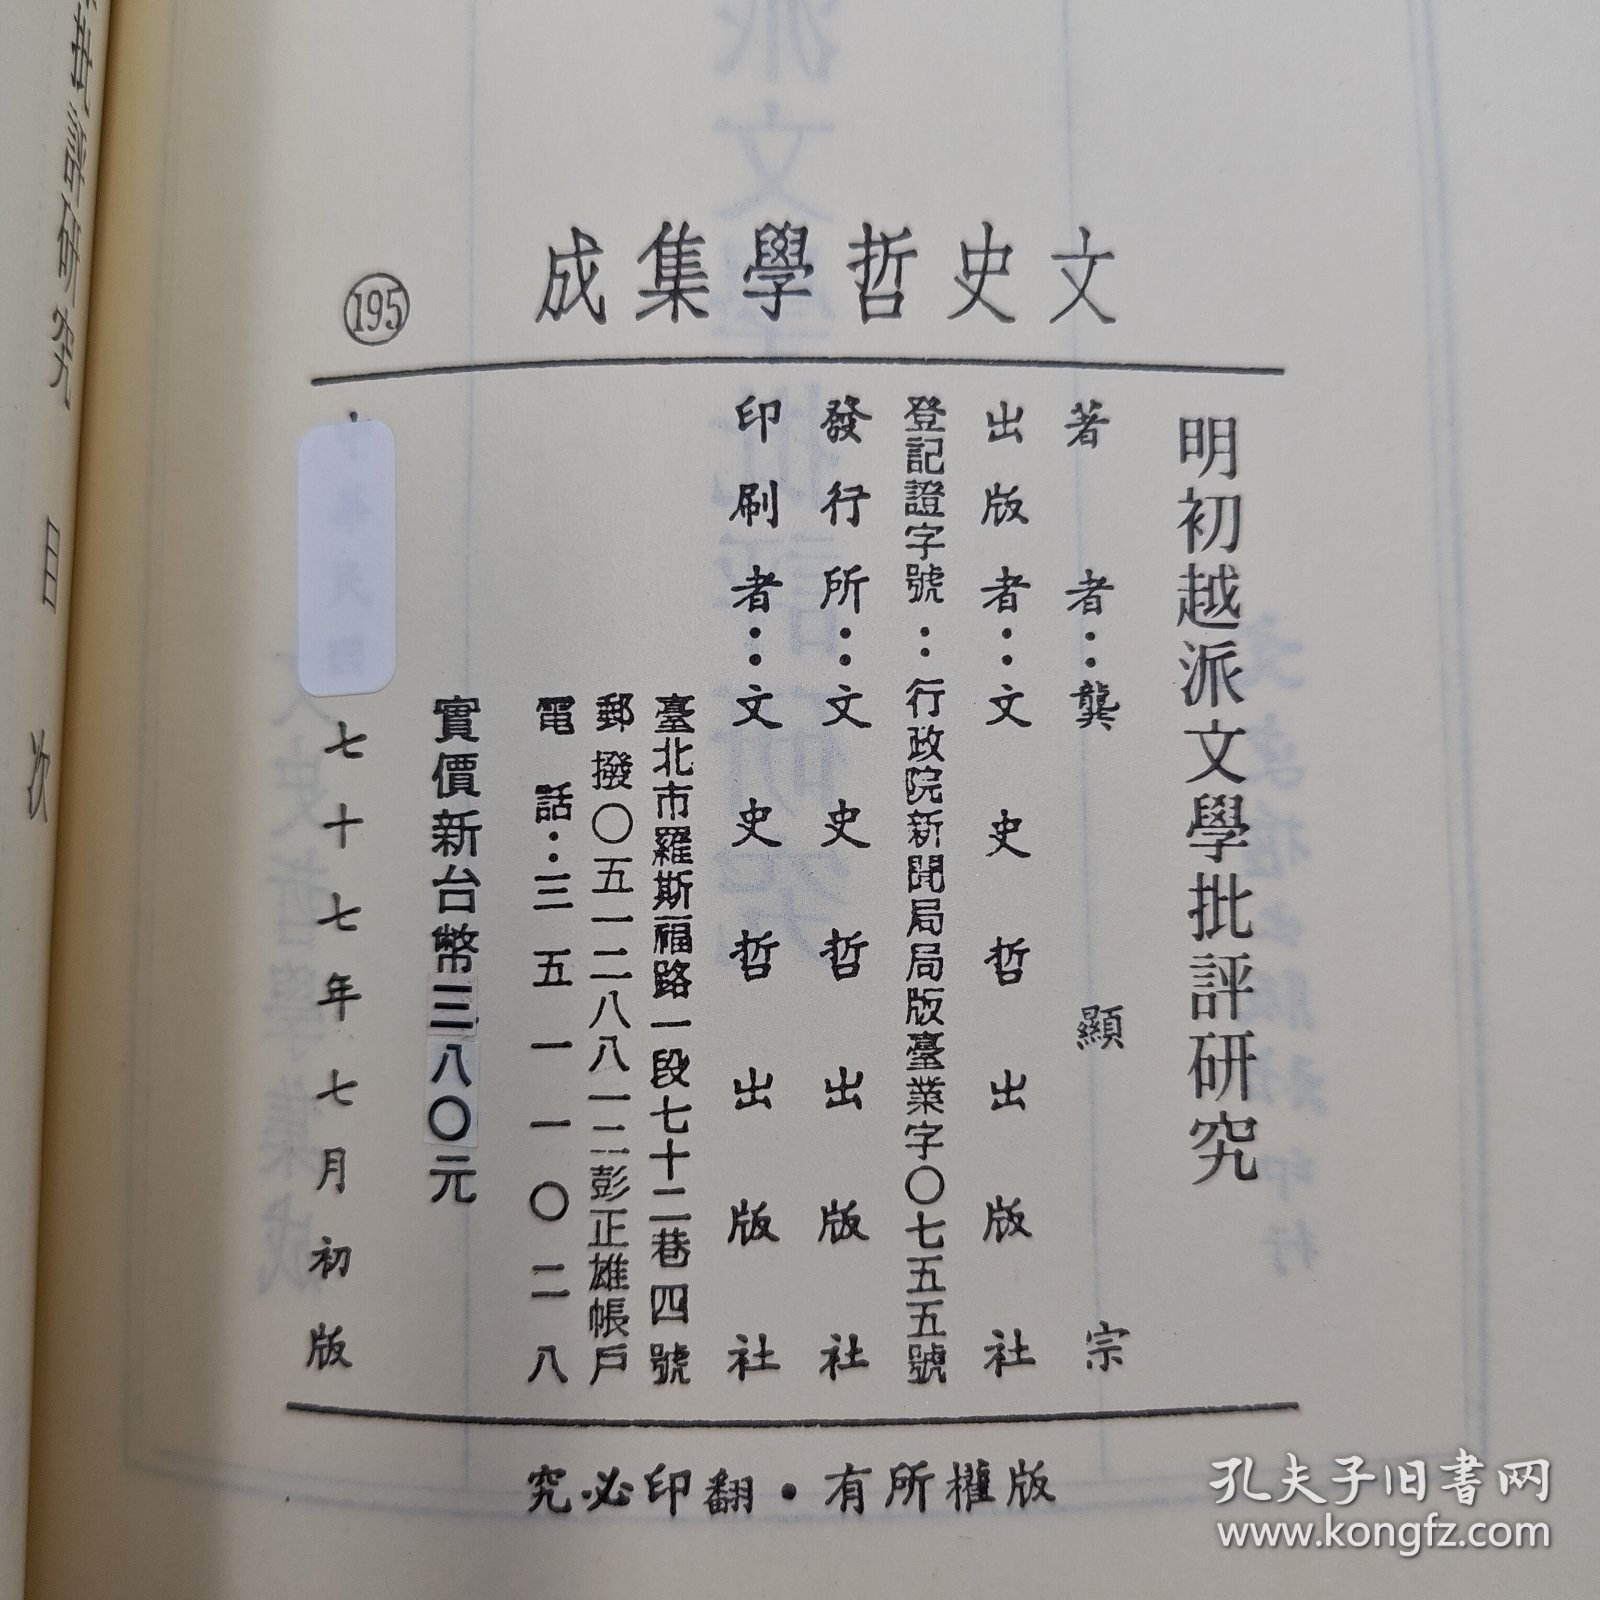 文史哲學集成
195
明初越派文學批評研究
著者：龔顯宗
出版者：文史哲出版社
登記證字號：行政院新聞局局版臺業字〇七五五號
發行所：文史哲出版社
印刷者：文史哲出版社
臺北市羅斯福路一段七十二巷四號
郵撥〇五一二八八一二彭正雄帳戶
電話：三五一一〇二八
實價新台幣三八〇元
七十七年七月初版
版權所有・翻印必究
評研究
目次
孔夫子旧书网
www.kongfz.com